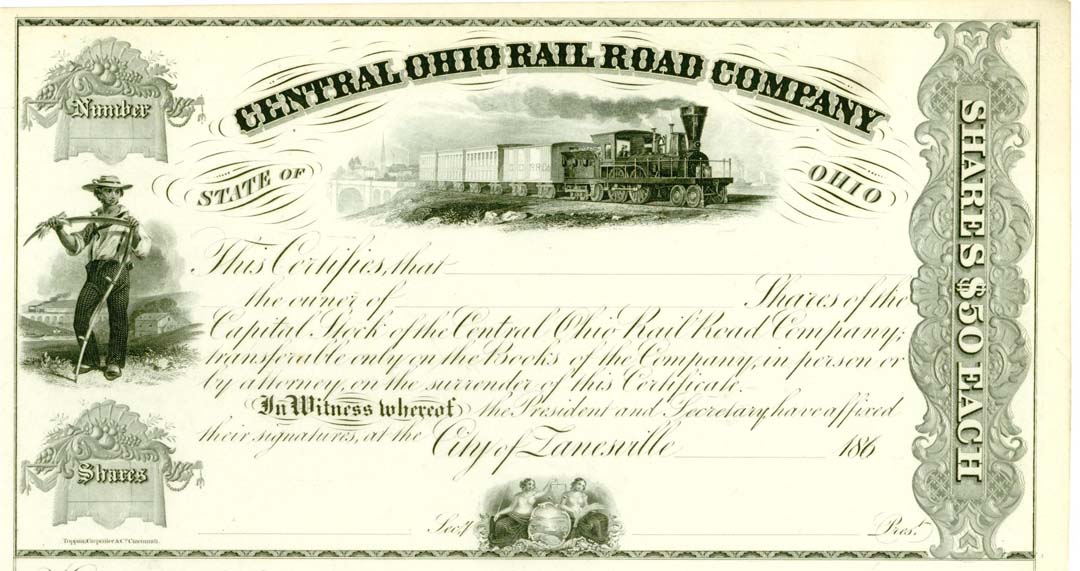 CENTRAL OHIO RAIL ROAD COMPANY
Number
STATE OF
OHIO
SHARES $50 EACH
This Certifies, that
the owner of Shares of the
Capital Stock of the Central Ohio Rail Road Company,
transferable only on the Books of the Company, in person or
by attorney, on the surrender of this Certificate.
In Witness whereof the President and Secretary, have affixed
their signatures, at the City of Zanesville 186
Shares
Secy.
Prest.
Toppan, Carpenter & Co. Cincinnati.